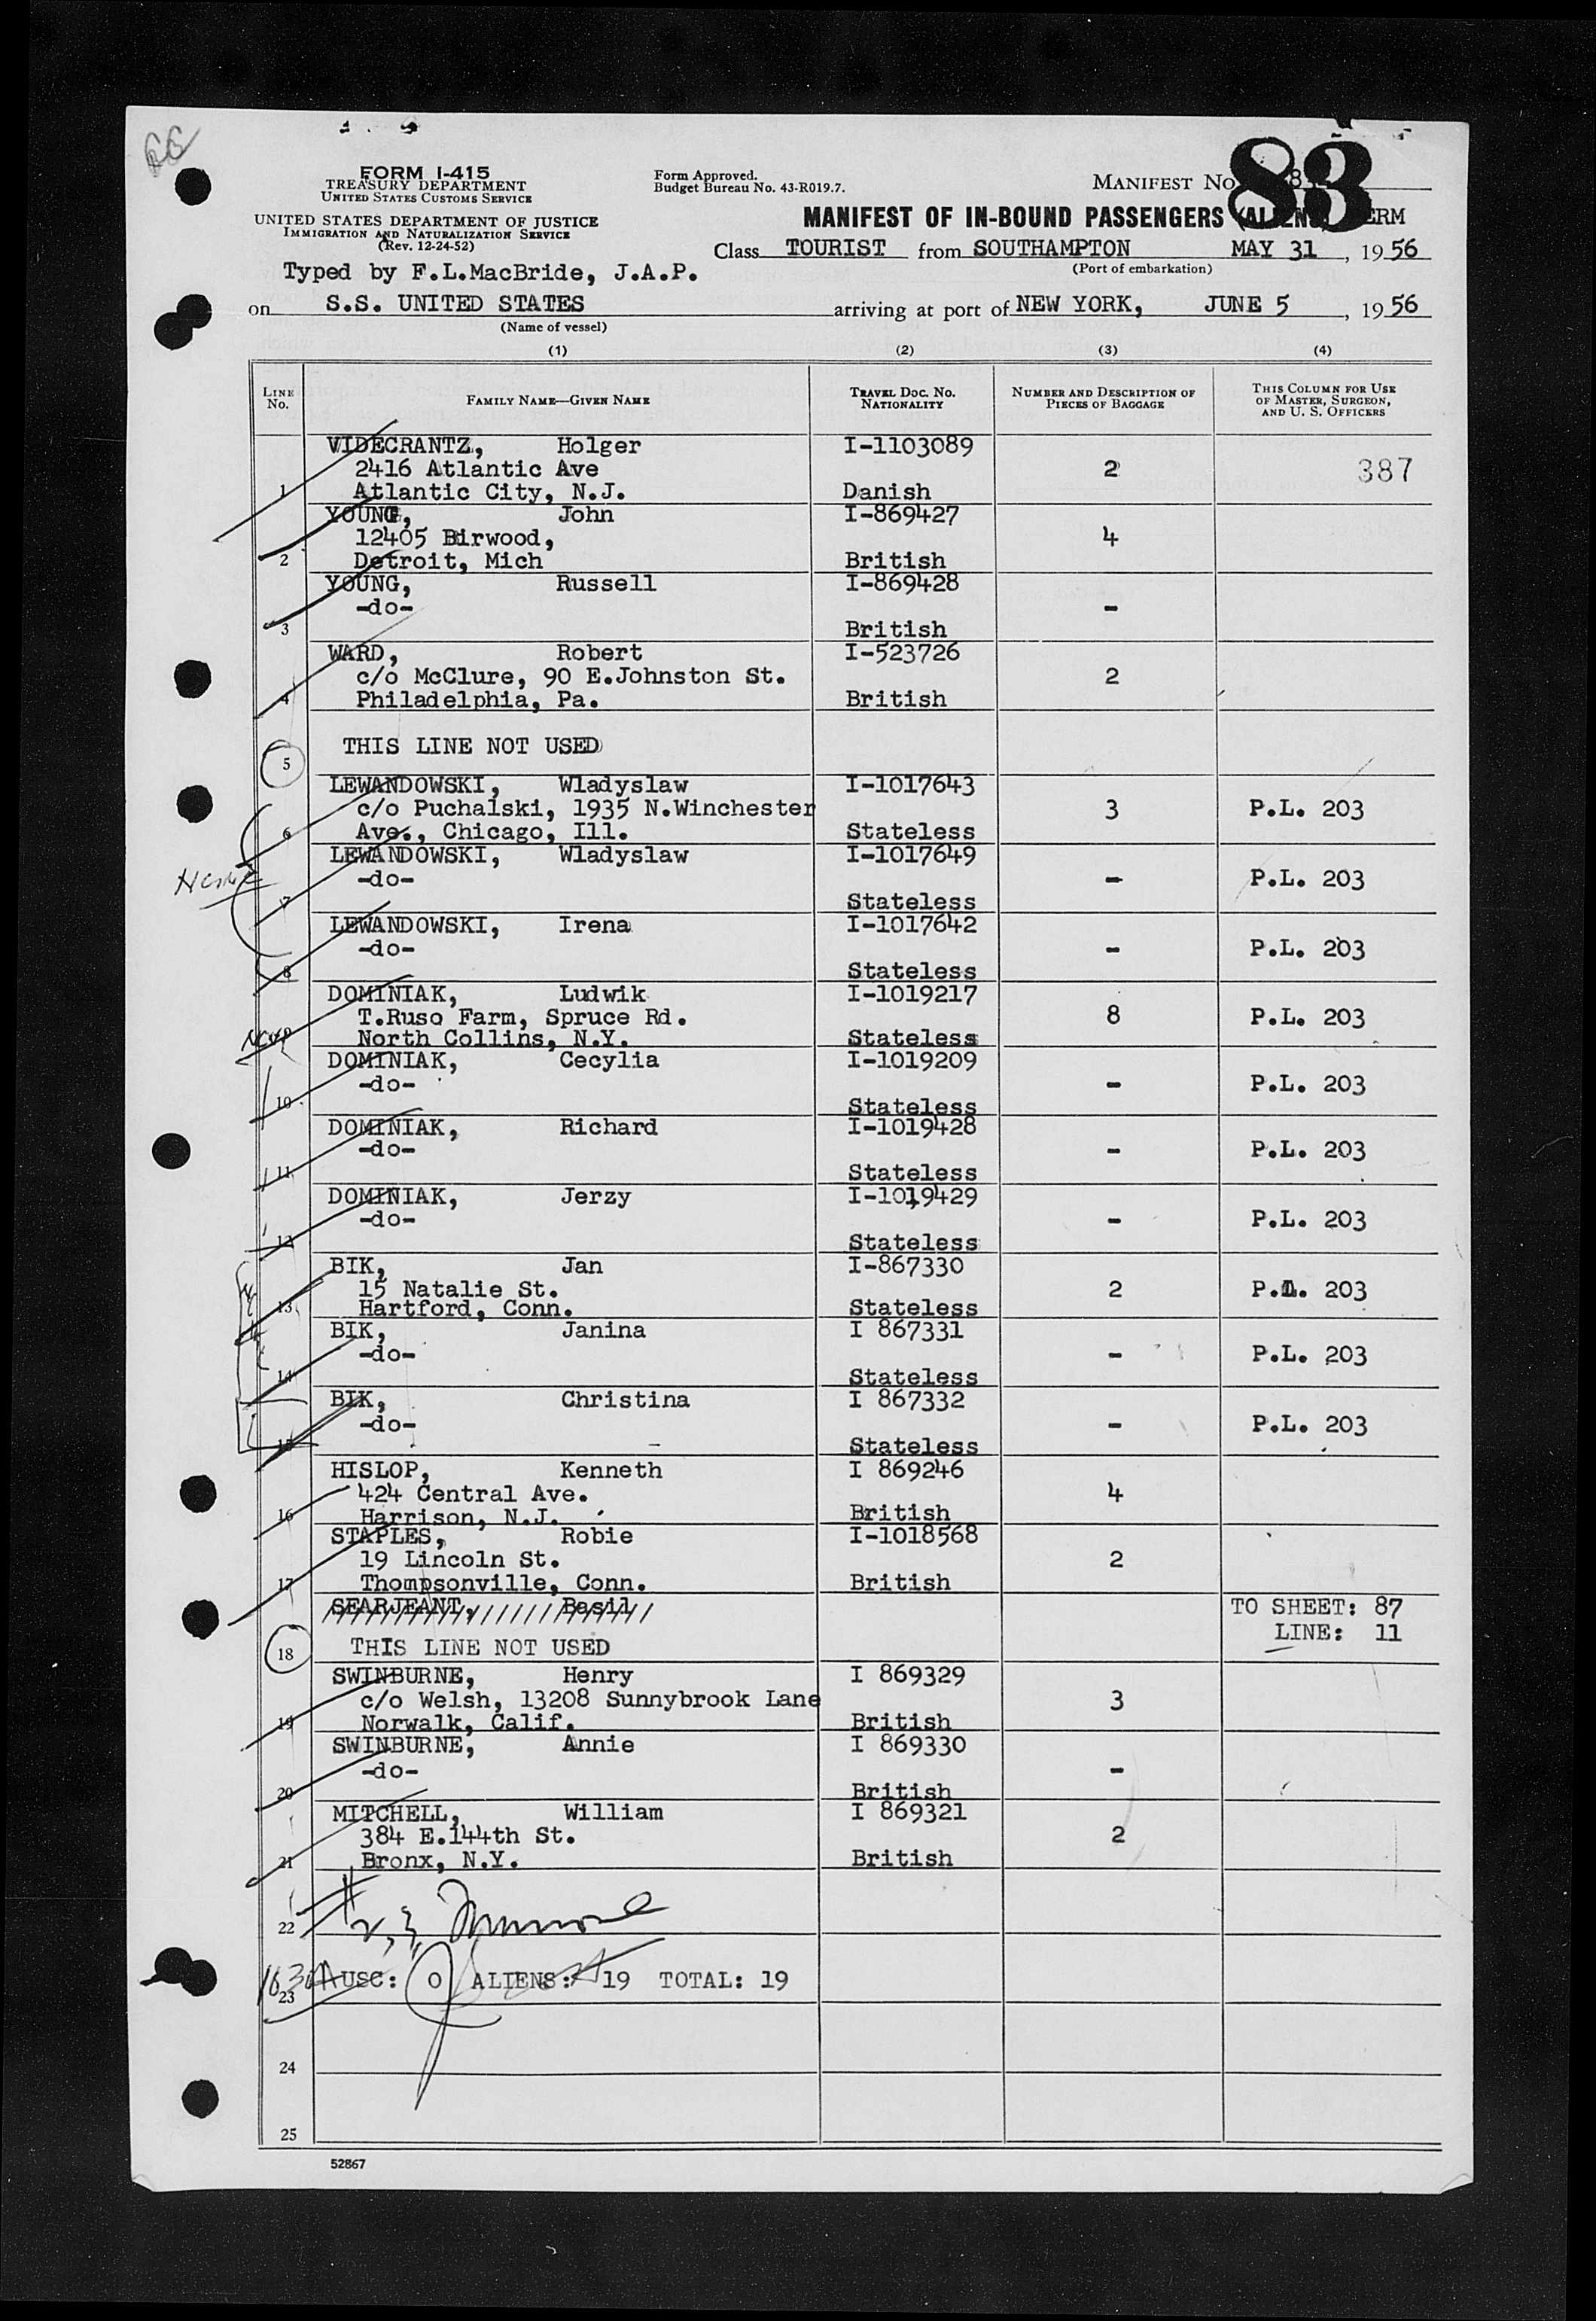 FORM I-415
TREASURY DEPARTMENT
UNITED STATES CUSTOMS SERVICE
UNITED STATES DEPARTMENT OF JUSTICE
IMMIGRATION AND NATURALIZATION SERVICE
(Rev. 12-24-52)
Form Approved.
Budget Bureau No. 43-R019.7.
MANIFEST No. 83
MANIFEST OF IN-BOUND PASSENGERS
Class TOURIST from SOUTHAMPTON MAY 31, 1956
(Port of embarkation)
Typed by F.L.MacBride, J.A.P.
on S.S. UNITED STATES arriving at port of NEW YORK, JUNE 5, 1956
(Name of vessel)
(1) (2) (3) (4)
LINE No. FAMILY NAME—GIVEN NAME TRAVEL DOC. NO. NATIONALITY NUMBER AND DESCRIPTION OF PIECES OF BAGGAGE THIS COLUMN FOR USE OF MASTER, SURGEON, AND U. S. OFFICERS
VIDECRANTZ, Holger I-1103089
2416 Atlantic Ave 2 387
1 Atlantic City, N.J. Danish
YOUNG, John I-869427
12405 Birwood, 4
2 Detroit, Mich British
YOUNG, Russell I-869428
-do- -
3 British
WARD, Robert I-523726
c/o McClure, 90 E.Johnston St. 2
4 Philadelphia, Pa. British
5 THIS LINE NOT USED
LEWANDOWSKI, Wladyslaw I-1017643
c/o Puchalski, 1935 N.Winchester 3 P.L. 203
6 Ave., Chicago, Ill. Stateless
LEWANDOWSKI, Wladyslaw I-1017649
-do- - P.L. 203
7 Stateless
LEWANDOWSKI, Irena I-1017642
-do- - P.L. 203
8 Stateless
DOMINIAK, Ludwik I-1019217
T.Ruso Farm, Spruce Rd. 8 P.L. 203
9 North Collins, N.Y. Stateless
DOMINIAK, Cecylia I-1019209
-do- - P.L. 203
10 Stateless
DOMINIAK, Richard I-1019428
-do- - P.L. 203
11 Stateless
DOMINIAK, Jerzy I-1019429
-do- - P.L. 203
12 Stateless
BIK, Jan I-867330
15 Natalie St. 2 P.L. 203
13 Hartford, Conn. Stateless
BIK, Janina I 867331
-do- - P.L. 203
14 Stateless
BIK, Christina I 867332
-do- - P.L. 203
15 Stateless
HISLOP, Kenneth I 869246
424 Central Ave. 4
16 Harrison, N.J. British
STAPLES, Robie I-1018568
19 Lincoln St. 2
17 Thompsonville, Conn. British
SEARJEANT, Basil TO SHEET: 87
LINE: 11
18 THIS LINE NOT USED
SWINBURNE, Henry I 869329
c/o Welsh, 13208 Sunnybrook Lane 3
19 Norwalk, Calif. British
SWINBURNE, Annie I 869330
-do- -
20 British
MITCHELL, William I 869321
384 E.144th St. 2
21 Bronx, N.Y. British
22
USC: 0 ALIENS: 19 TOTAL: 19
23
24
25
52867